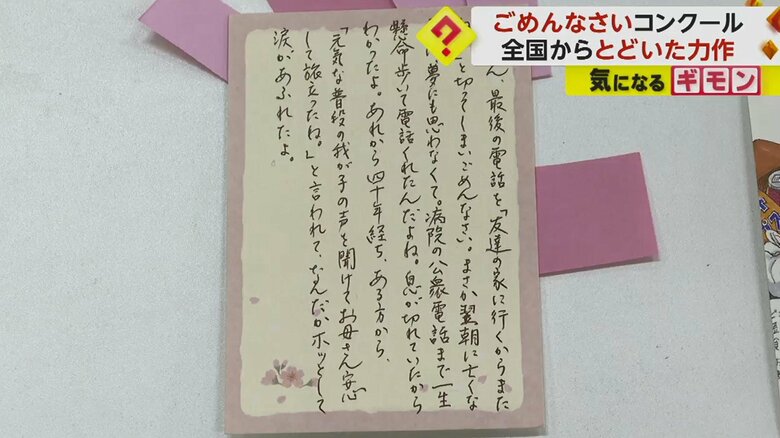 ごめんなさいコンクール
全国からとどいた力作
気になるギモン
ん、最後の電話を「友達の家に行くからまた
と切ってしまいごめんなさい。まさか翌朝に亡くな
夢にも思わなくて。病院の公衆電話まで一生
懸命歩いて電話くれたんだよね。息が切れていたから
わかったよ。あれから四十年経ち、ある方から、
「元気な普段の我が子の声を聞けてお母さん安心
して旅立ったね。」と言われて、なんだかホッとして
涙があふれたよ。